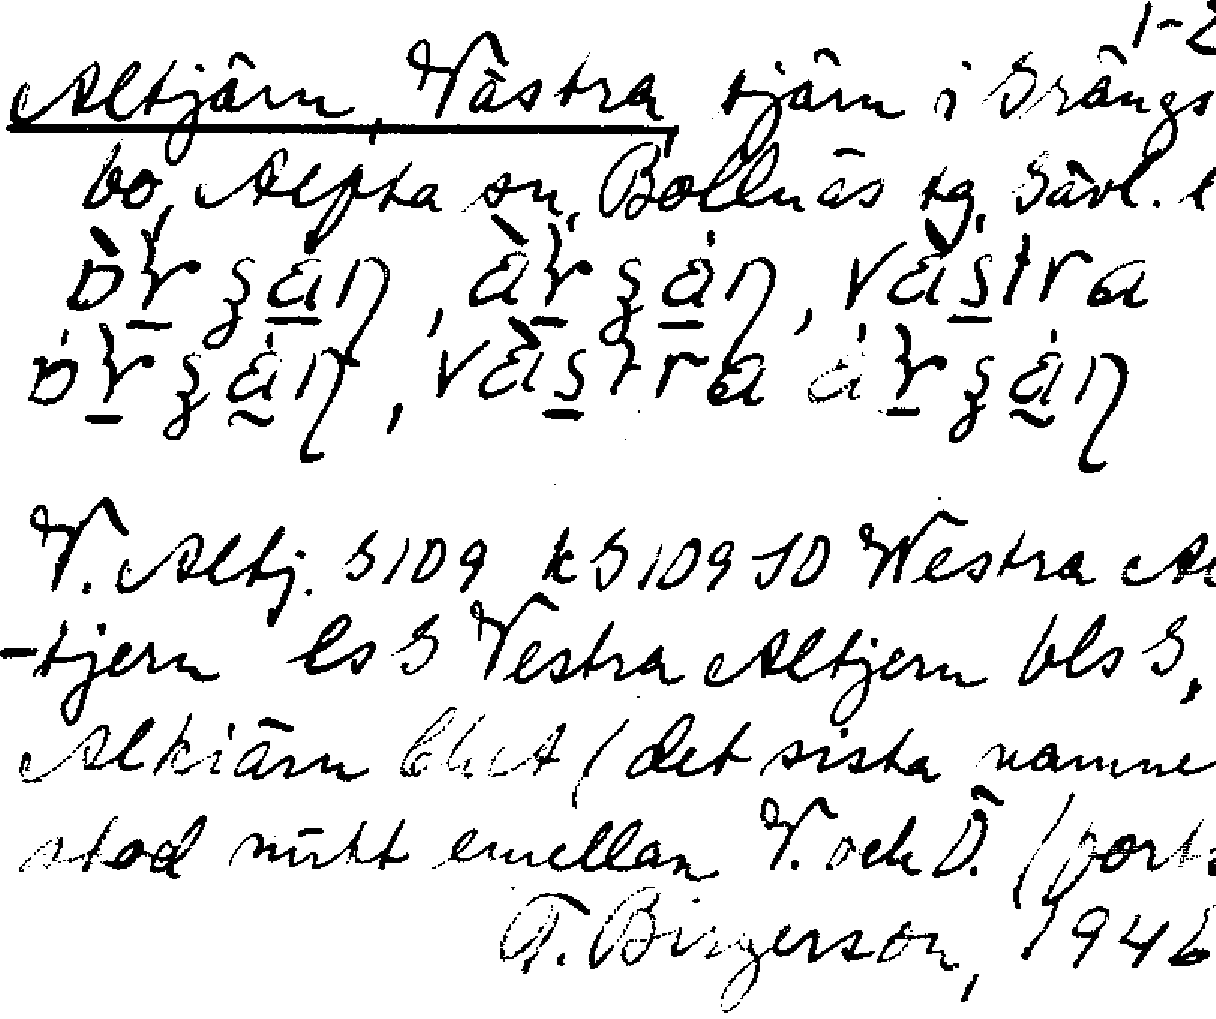 1-2
Altjärn, Västra, tjärn i Gräng
bo, Alfta sn, Bollnäs tg, Gävl. l
västra
västra
V. Altj. G109 kG109 SO Westra Al
-tjern ls G Vestra Altjern bls G,
Alkiärn (det sista namne
stod mitt emellan V. och Ö. (forts
T. Birgerson, 1946